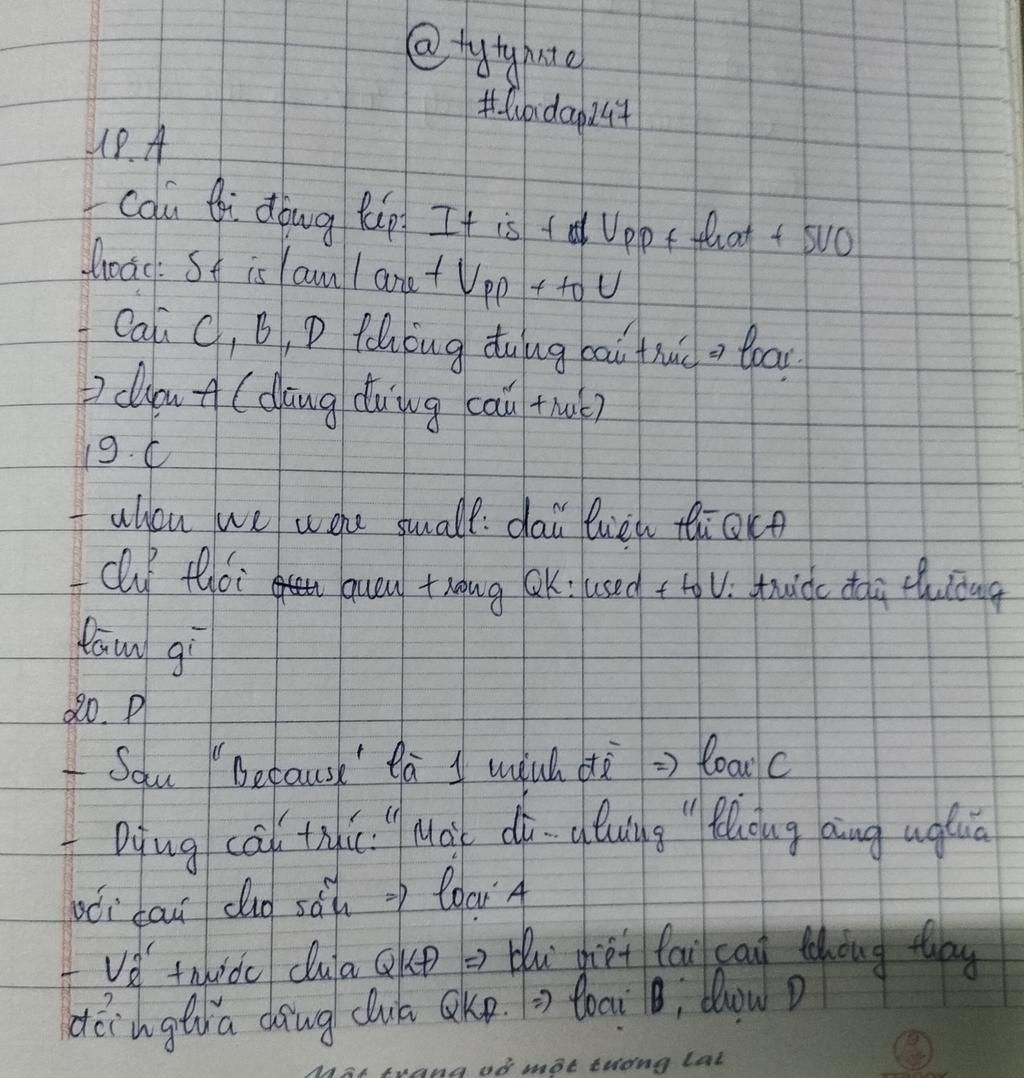 @tytynnte
#hoidap247
18. A
- Câu bị động kép: It is + Vpp + that + SVO
hoặc: S + is / am / are + Vpp + to V
- Câu C, B, D không đúng cấu trúc => loại.
=> chọn A (dùng đúng cấu trúc)
19. C
- when we were small: dấu hiệu thì QKĐ
- Chỉ thói quen trong QK: used + to V: trước đây thường
làm gì
20. D
- Sau "Because" là 1 mệnh đề => loại C
- Dùng cấu trúc: "Mặc dù - nhưng" không cùng nghĩa
với câu cho sẵn => loại A
- Vế trước chia QKĐ => khi viết lại câu không thay
đổi nghĩa cũng chia QKĐ. => loại B, chọn D
Một trang vở một tương lai